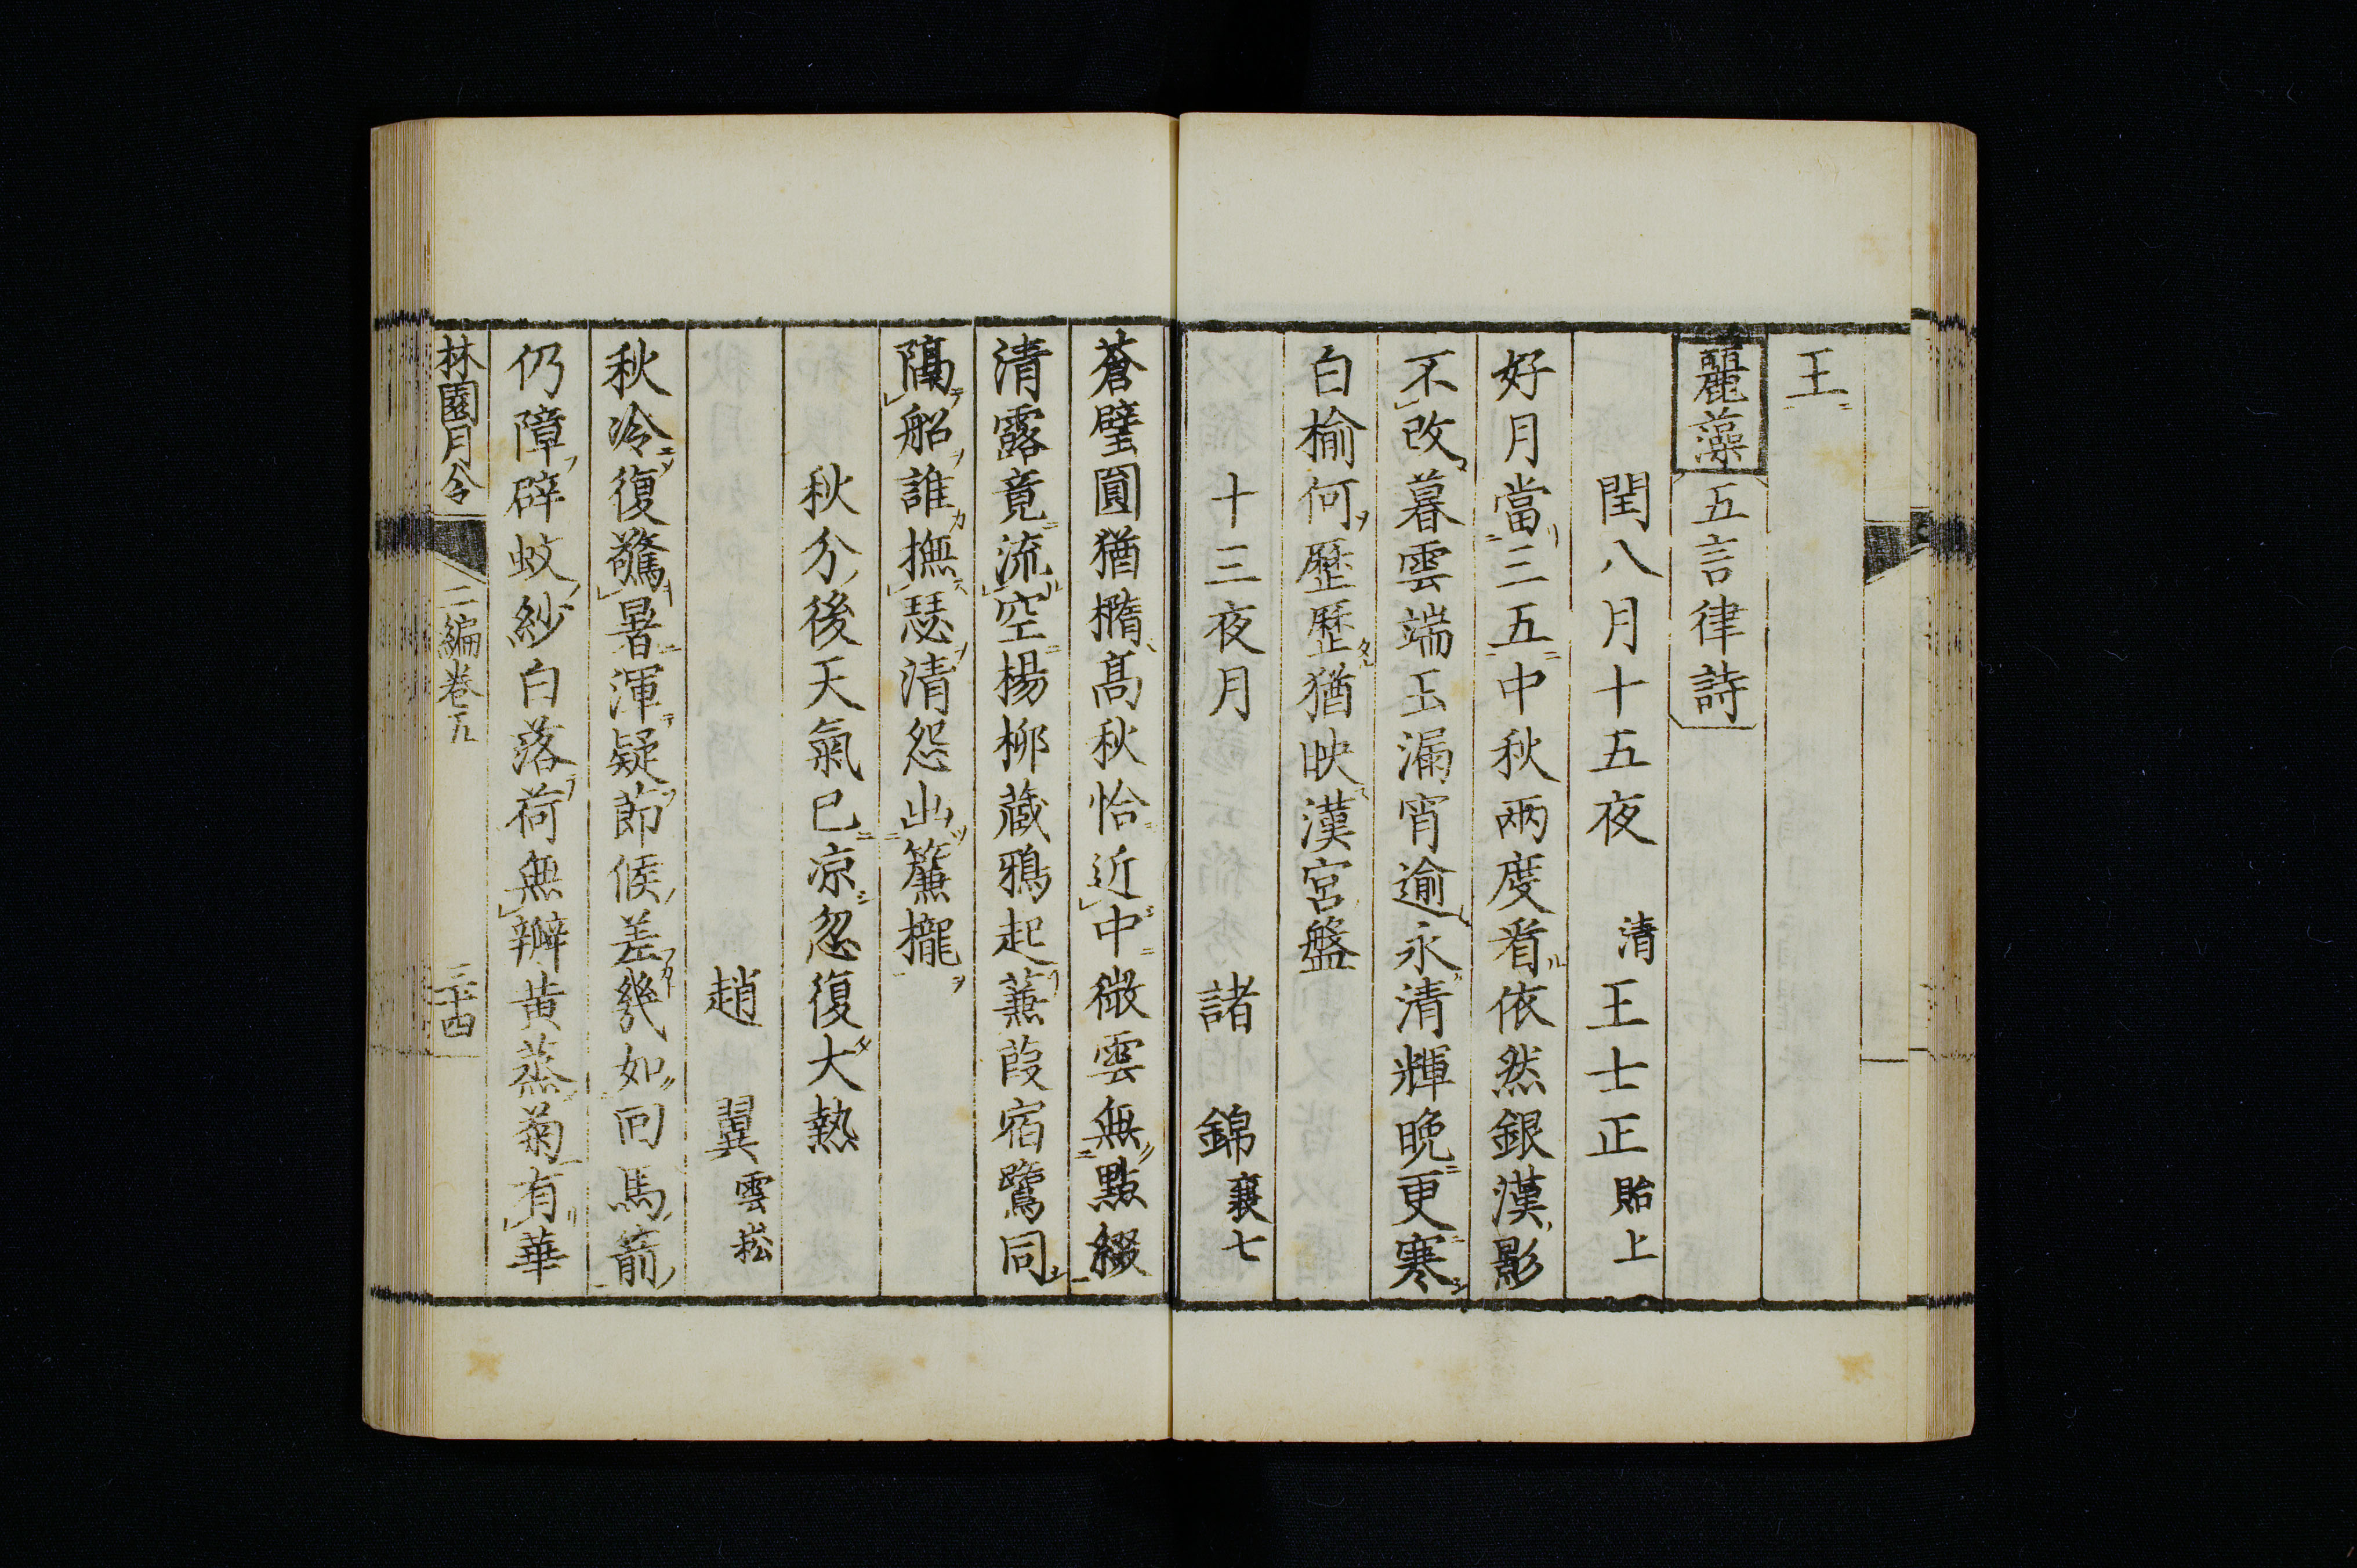 王
麗藻 五言律詩
閏八月十五夜 清 王士正 貽上
好月當三五中秋兩度看依然銀漢影
不改暮雲端玉漏宵逾永清輝晩更寒
白榆何歷歷猶映漢宮盤
十三夜月 諸 錦 襄七
蒼璧圓猶橢高秋恰近中微雲無點綴
清露竟流空楊柳藏鴉起蒹葭宿鷺同
隔船誰撫瑟清怨出簾櫳
秋分後天氣已凉忽復大熱
趙 翼 雲崧
秋冷復驚暑渾疑節候差幾如回馬前
仍障辟蚊紗白落荷無瓣黄蒸菊有華
林園月令 二編卷九 三十四